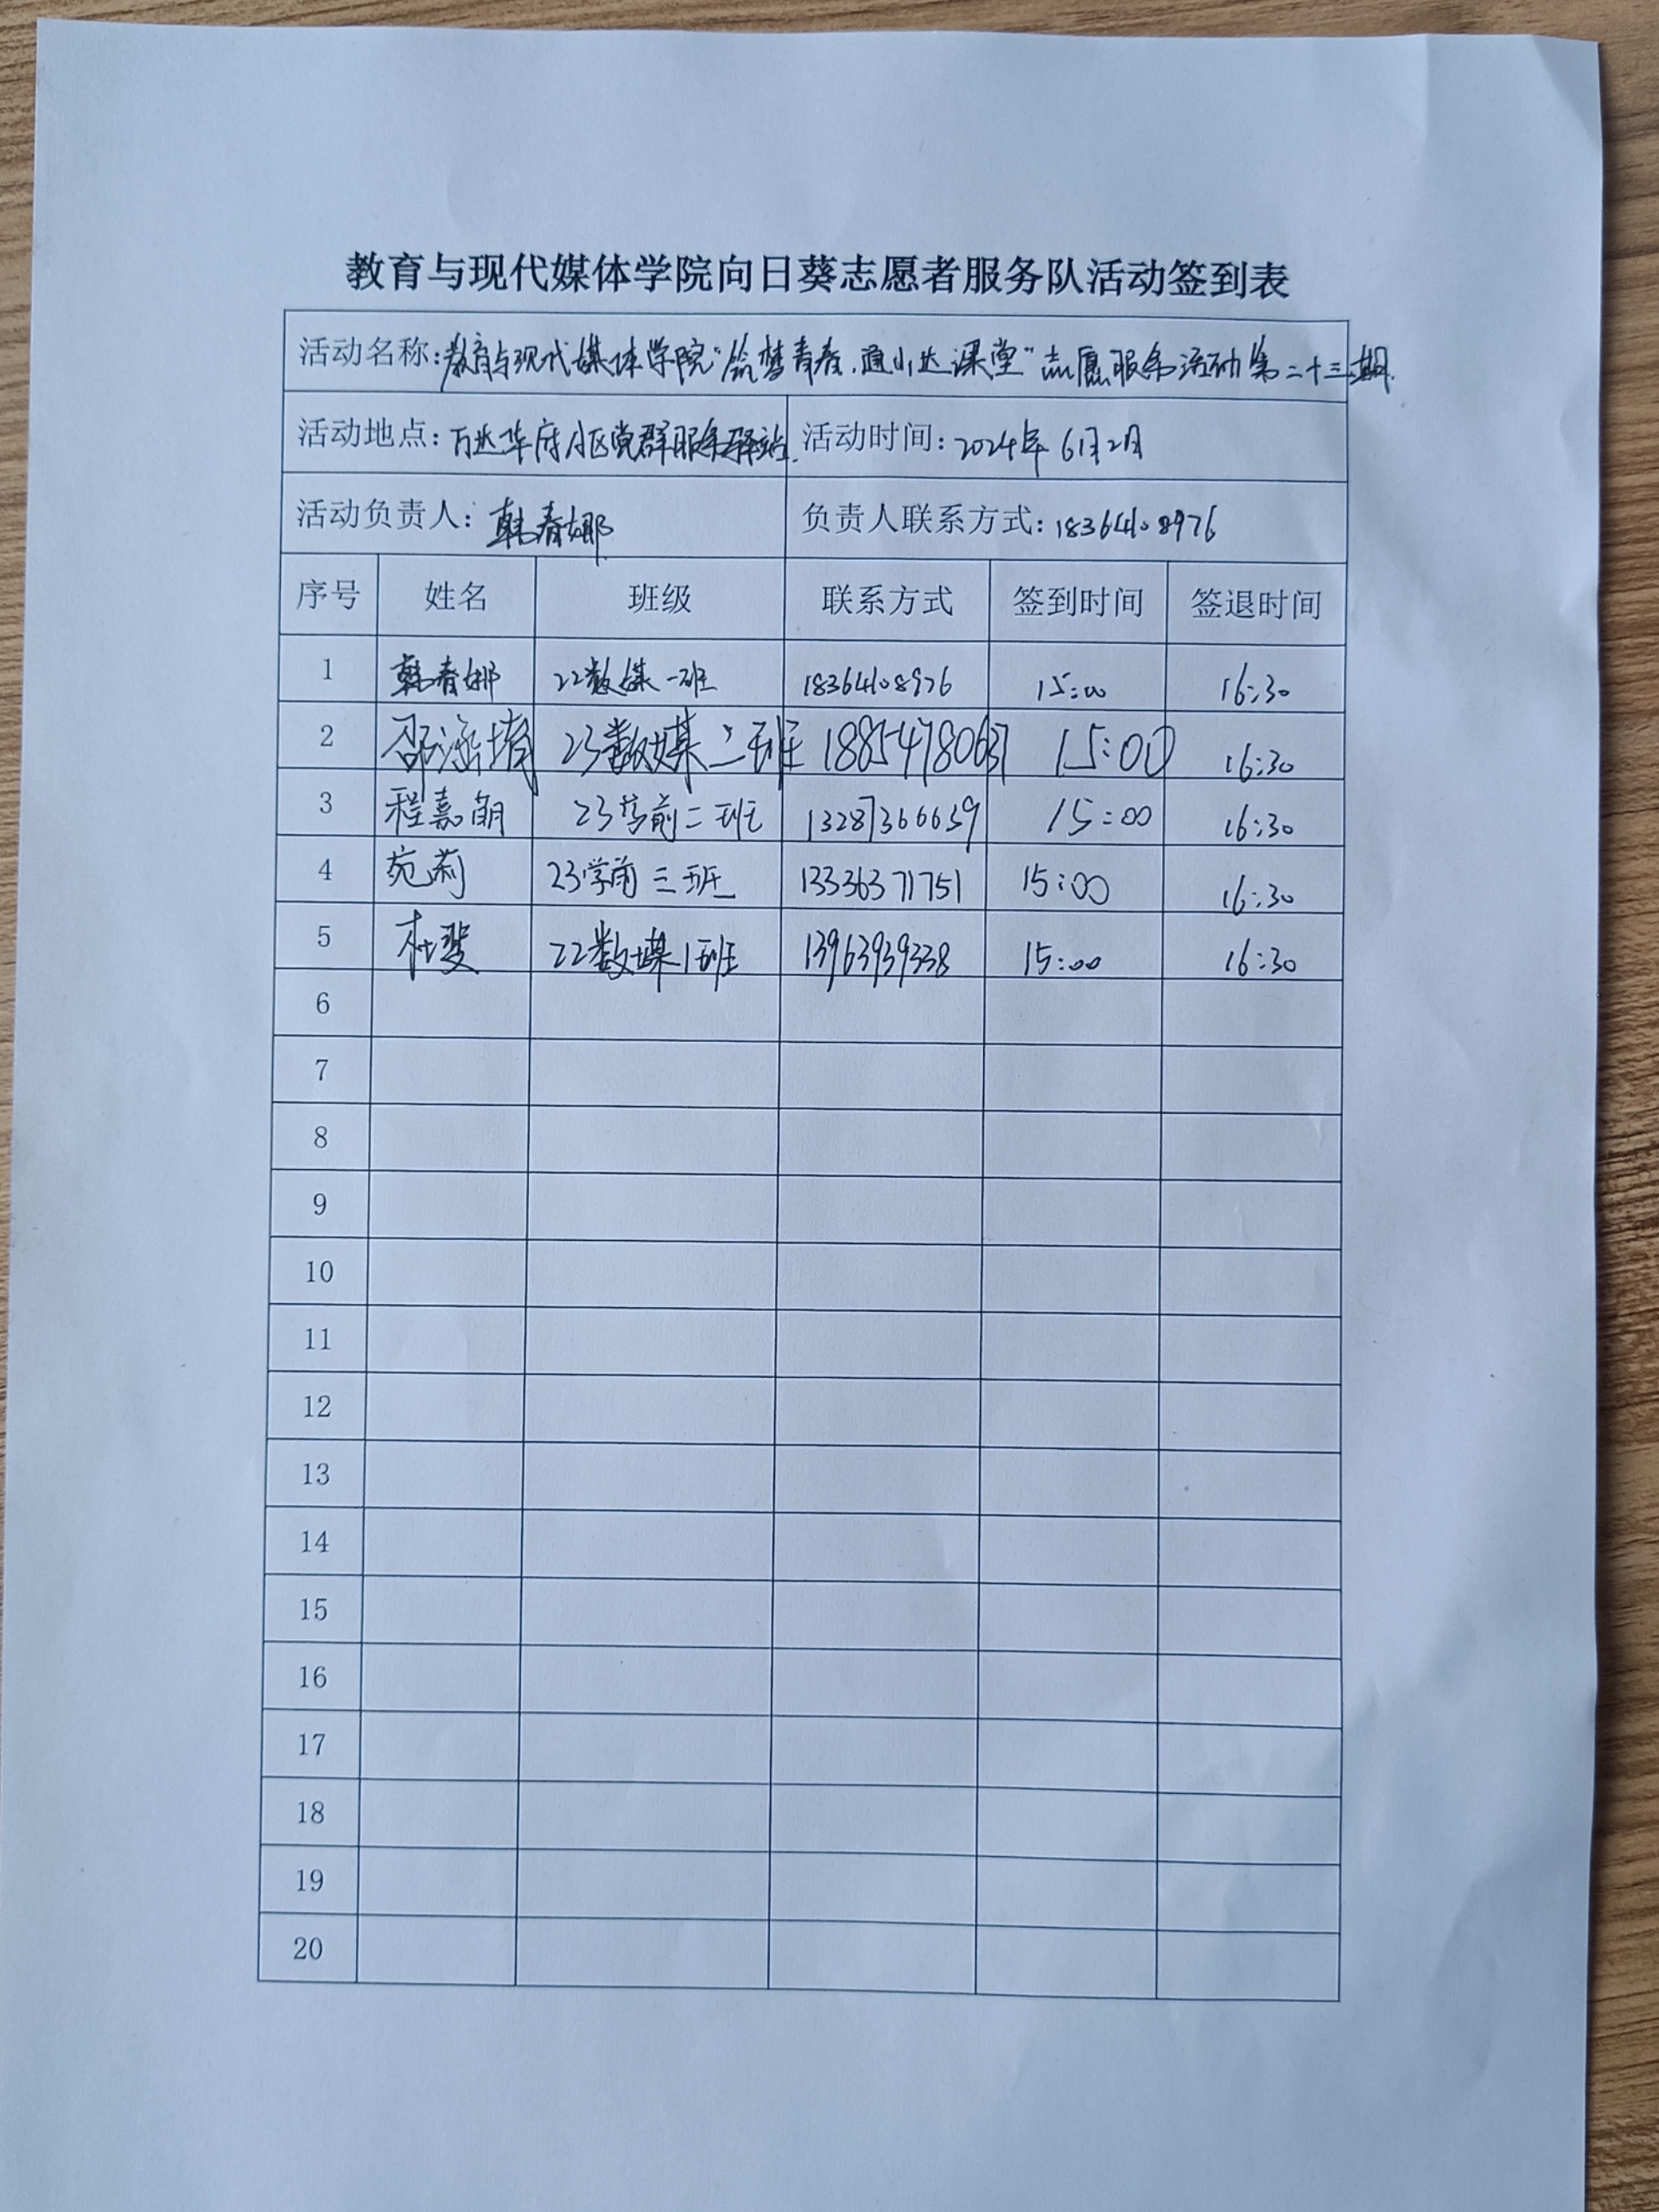 教育与现代媒体学院向日葵志愿者服务队活动签到表
活动名称:教育与现代媒体学院"筑梦青春,通小达课堂"志愿服务活动第二十三期.
活动地点:万达华府小区党群服务驿站. 活动时间:2024年6月2日
活动负责人:韩春娜 负责人联系方式:18364108976
序号 姓名 班级 联系方式 签到时间 签退时间
1 韩春娜 22数媒一班 18364108976 15:00 16:30
2 邵涵堉 23数媒二班 18854780637 15:00 16:30
3 程嘉朗 23学前二班 13287366639 15:00 16:30
4 苑莉 23学前三班 13336371751 15:00 16:30
5 杜斐 22数媒1班 13963939338 15:00 16:30
6
7
8
9
10
11
12
13
14
15
16
17
18
19
20